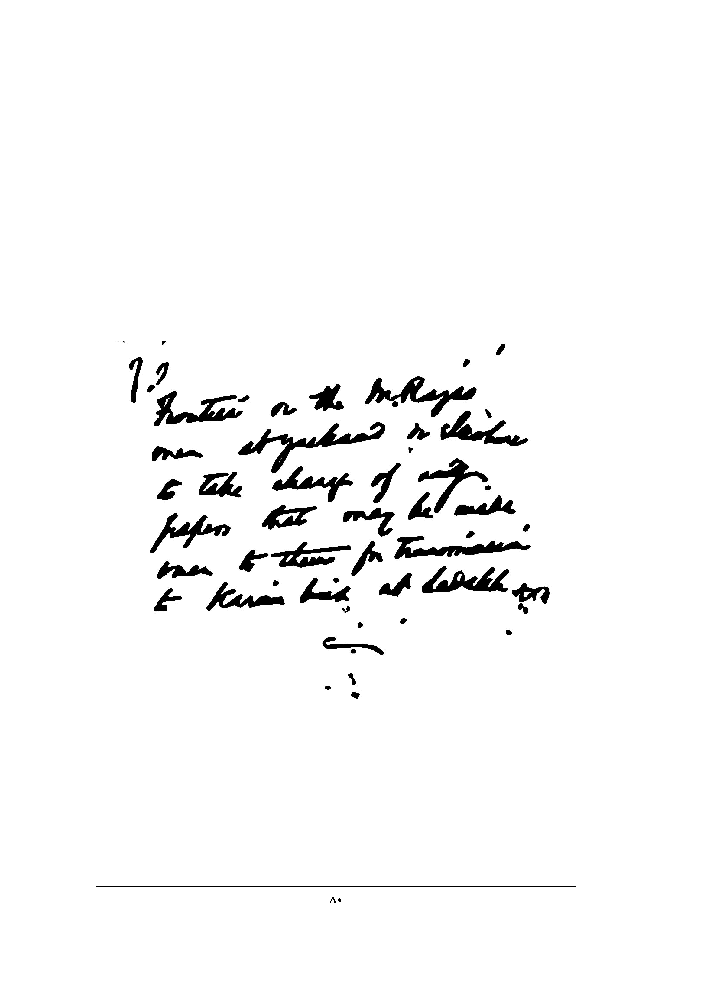 Frontier or the M. Rajas
men at Yarkand or elsewhere
to take charge of any
papers that may be made
over to them for transmission
to Karim at Ladakh
٨٠